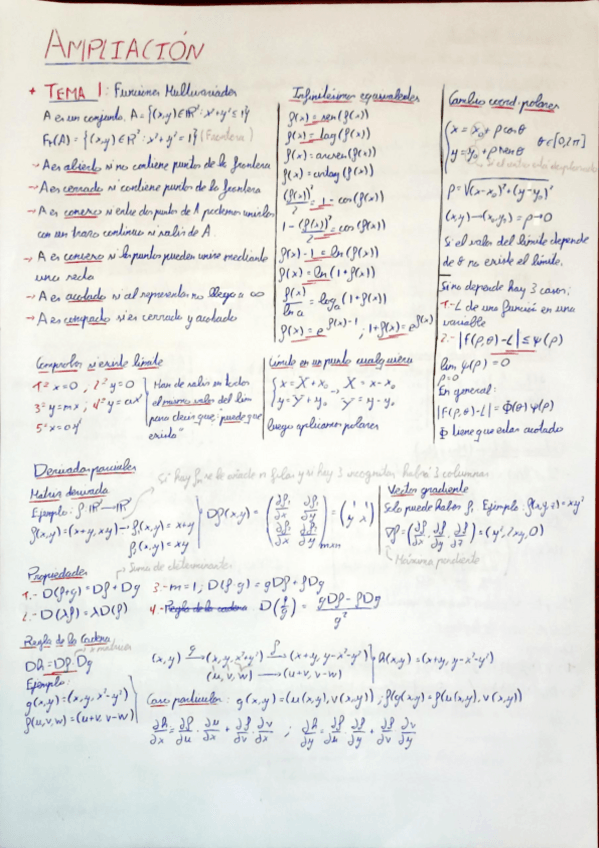 AMPLIACIÓN
+ TEMA 1: Funciones Multivariadas
A es un conjunto. A = {(x,y) ∈ ℝ² : x² + y² ≤ 1}
Fr(A) = {(x,y) ∈ ℝ² : x² + y² = 1} (Frontera)
→ A es abierto si no contiene puntos de la frontera
→ A es cerrado si contiene puntos de la frontera
→ A es conexo si entre dos puntos de A podemos unirlos
con un trazo continuo ni salir de A.
→ A es convexo si los puntos pueden unirse mediante
una recta
→ A es acotado si al representar no llega a ∞
→ A es compacto si es cerrado y acotado
Infinitésimos equivalentes
f(x) = sen(f(x))
f(x) = tag(f(x))
f(x) = arcsen(f(x))
f(x) = arctag(f(x))
(f(x))²/2 = 1 - cos(f(x))
1 - (f(x))²/2 = cos(f(x))
f(x) - 1 = ln(f(x))
f(x) = ln(1 + f(x))
f(x)/ln a = log_a(1 + f(x))
f(x) = e^f(x) - 1 ; 1 + f(x) = e^f(x)
Cambio coord. polares
x = x₀ + ρ cos θ
y = y₀ + ρ sen θ
θ ∈ [0, 2π]
ρ = √((x-x₀)² + (y-y₀)²)
(x,y) → (x₀,y₀) = ρ → 0
Si el valor del límite depende
de θ no existe el límite.
Si no depende hay 3 casos:
1.- L de una función en una
variable
2.- |f(ρ,θ) - L| ≤ ψ(ρ)
lim ψ(ρ) = 0
ρ→0
En general:
|f(ρ,θ) - L| = Φ(θ) ψ(ρ)
Φ tiene que estar acotado
Comprobar si existe límite
1º x = 0 ; 2º y = 0
3º y = mx ; 4º y = ax²
5º x = ay²
Han de salir en todos
el mismo valor del lim
para decir que "puede que
exista"
Límite en un punto cualquiera
x = X + x₀ → X = x - x₀
y = Y + y₀ → Y = y - y₀
luego aplicamos polares
Derivadas parciales
Si hay f₂ se le añade una fila y si hay 3 incógnitas habrá 3 columnas
Matriz derivada
Ejemplo: f: ℝ² → ℝ²
f(x,y) = (x+y, xy) → f₁(x,y) = x+y
f₂(x,y) = xy
Df(x,y) = (∂f₁/∂x ∂f₁/∂y ; ∂f₂/∂x ∂f₂/∂y)m×n = (1 1 ; y x)
Vector gradiente
Solo puede haber f₁ Ejemplo: f(x,y,z) = xy²
∇f = (∂f/∂x, ∂f/∂y, ∂f/∂z) = (y², 2xy, 0)
Máxima pendiente
Propiedades
Suma de determinantes
1.- D(f+g) = Df + Dg
2.- D(λf) = λD(f)
3.- m = 1; D(f·g) = gDf + fDg
4.- Regla de la cadena D(f/g) = (gDf - fDg)/g²
Regla de la Cadena
Dh = Df · Dg
x matrices
Ejemplo:
g(x,y) = (x, y, x²-y²)
f(u,v,w) = (u+v, v-w)
(x,y) →g (x, y, x²+y²) →f (x+y, y-x²-y²)
(u, v, w) → (u+v, v-w)
h(x,y) = (x+y, y-x²-y²)
Caso particular: g(x,y) = (u(x,y), v(x,y)); f(g(x,y)) = f(u(x,y), v(x,y))
∂h/∂x = ∂f/∂u · ∂u/∂x + ∂f/∂v · ∂v/∂x ; ∂h/∂y = ∂f/∂u · ∂u/∂y + ∂f/∂v · ∂v/∂y